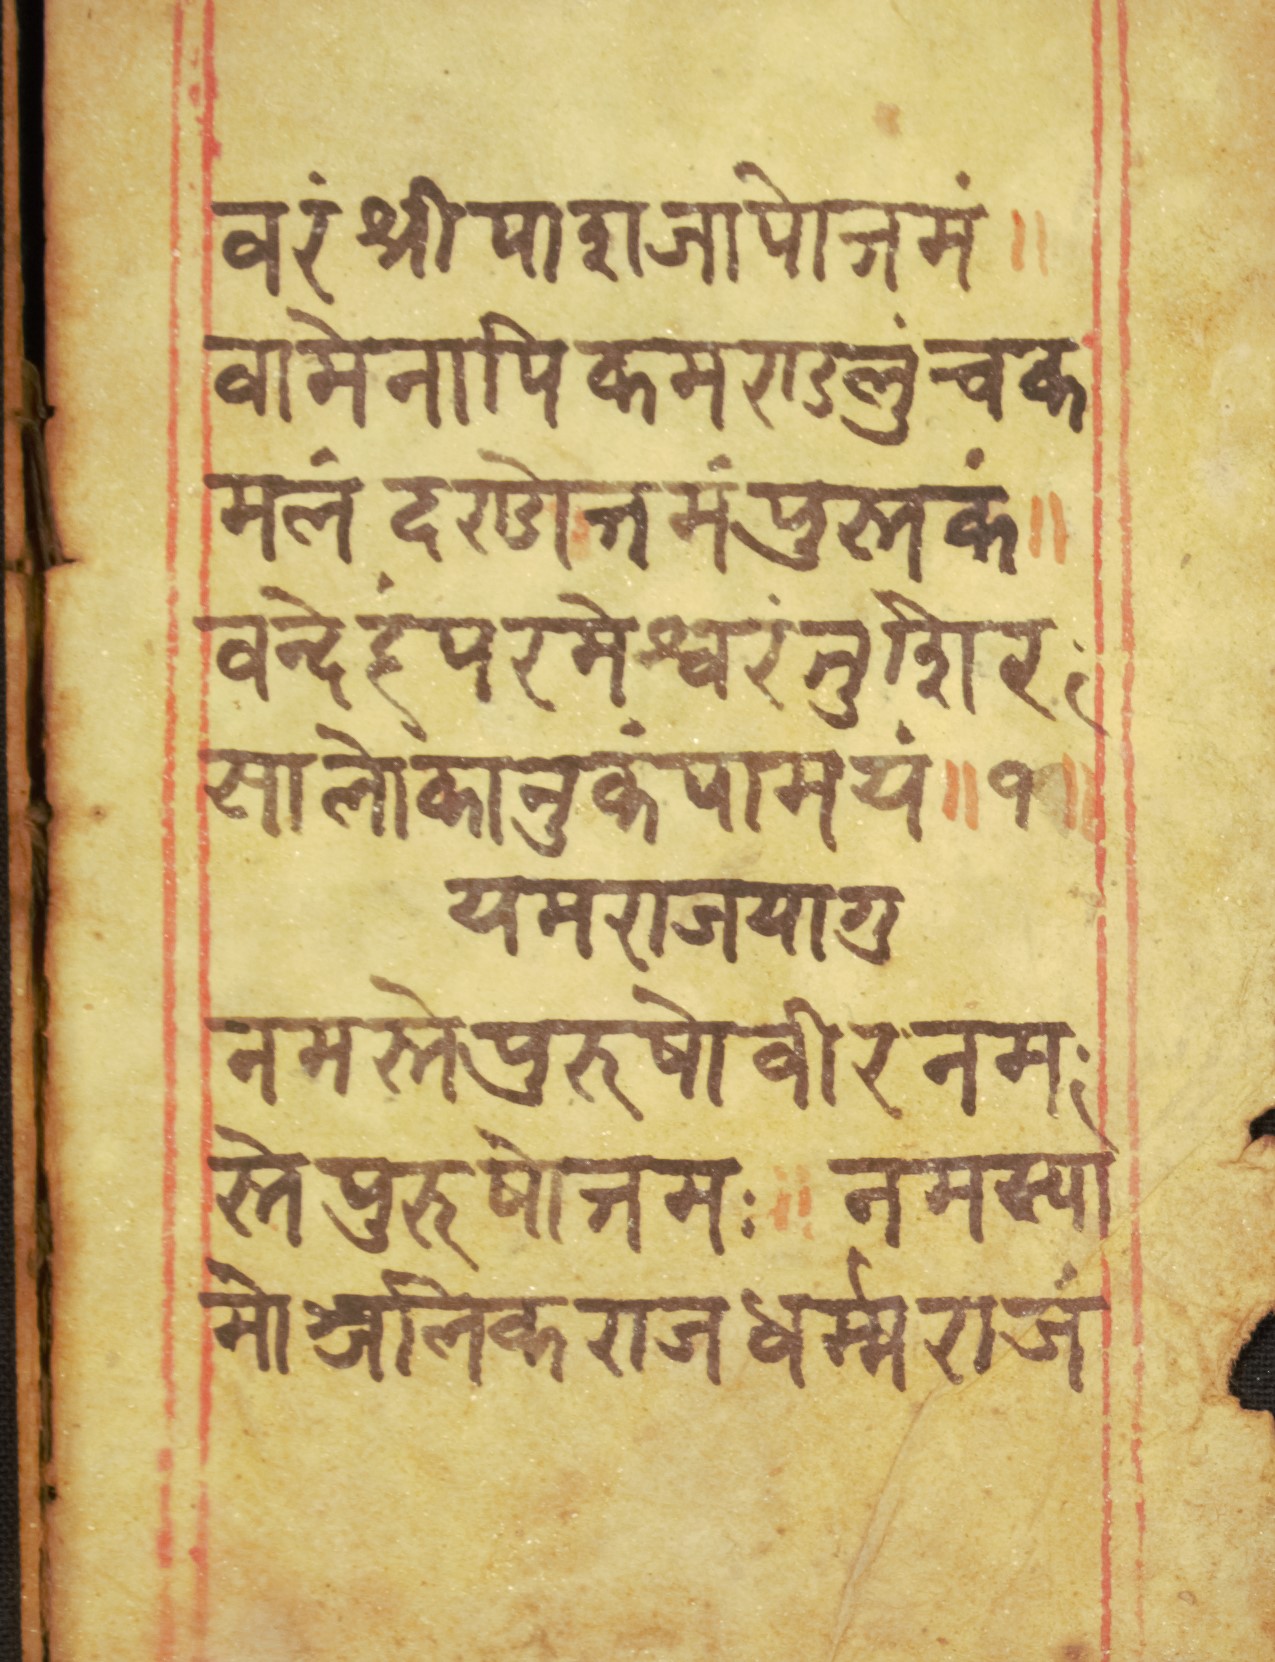 वरं श्री पाश जापोत्तमं ॥
वामेनापि कमराडलुं च क
मलं दराडोत्तमं पुस्तकं ॥
वन्देहं परमेश्वरं तु शिरः
सा लोकानुकंपामयं ॥ १ ॥
यमराजयागु
नमस्ते पुरुषो वीर नमः
स्ते पुरुषोत्तमः ॥ नमस्या
मोञ्जलिकराज धर्म्मराजं